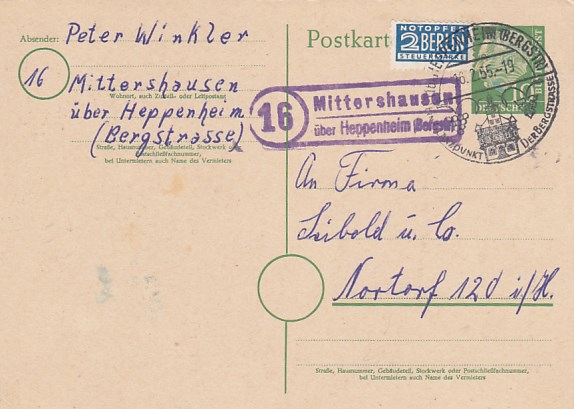 Absender: Peter Winkler
16
Mittershausen
Wohnort, auch Zustell- oder Leitpostamt
über Heppenheim
(Bergstrasse)
Straße, Hausnummer, Gebäudeteil, Stockwerk oder
Postschließfachnummer,
bei Untermietern auch Name des Vermieters
Postkarte
NOTOPFER
2 BERLIN
STEUERMARKE
HEPPENHEIM (BERGSTR)
-19
10
DEUTSCHE
DER BERGSTRASSE
16
Mittershausen
über Heppenheim (Bergstr)
An Firma
Seibold u. Co.
Nortorf 12d i/H.
Straße, Hausnummer, Gebäudeteil, Stockwerk oder Postschließfachnummer,
bei Untermietern auch Name des Vermieters